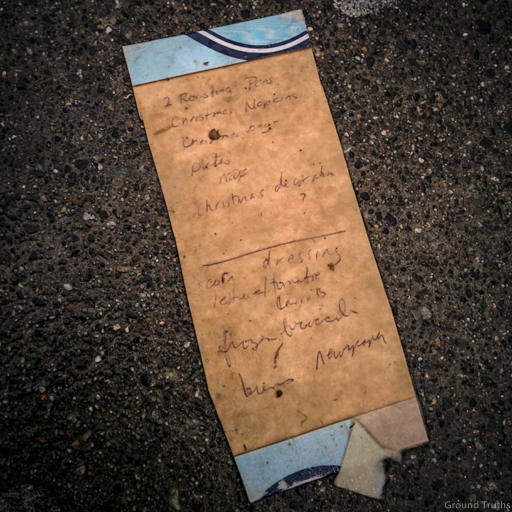 2 Roasting Pans
Christmas Napkins
Christmas cups
plates
Christmas decoration
?
dressing
corn
lettuce/tomatoe
frozen broccoli
newspaper
Ground Truths